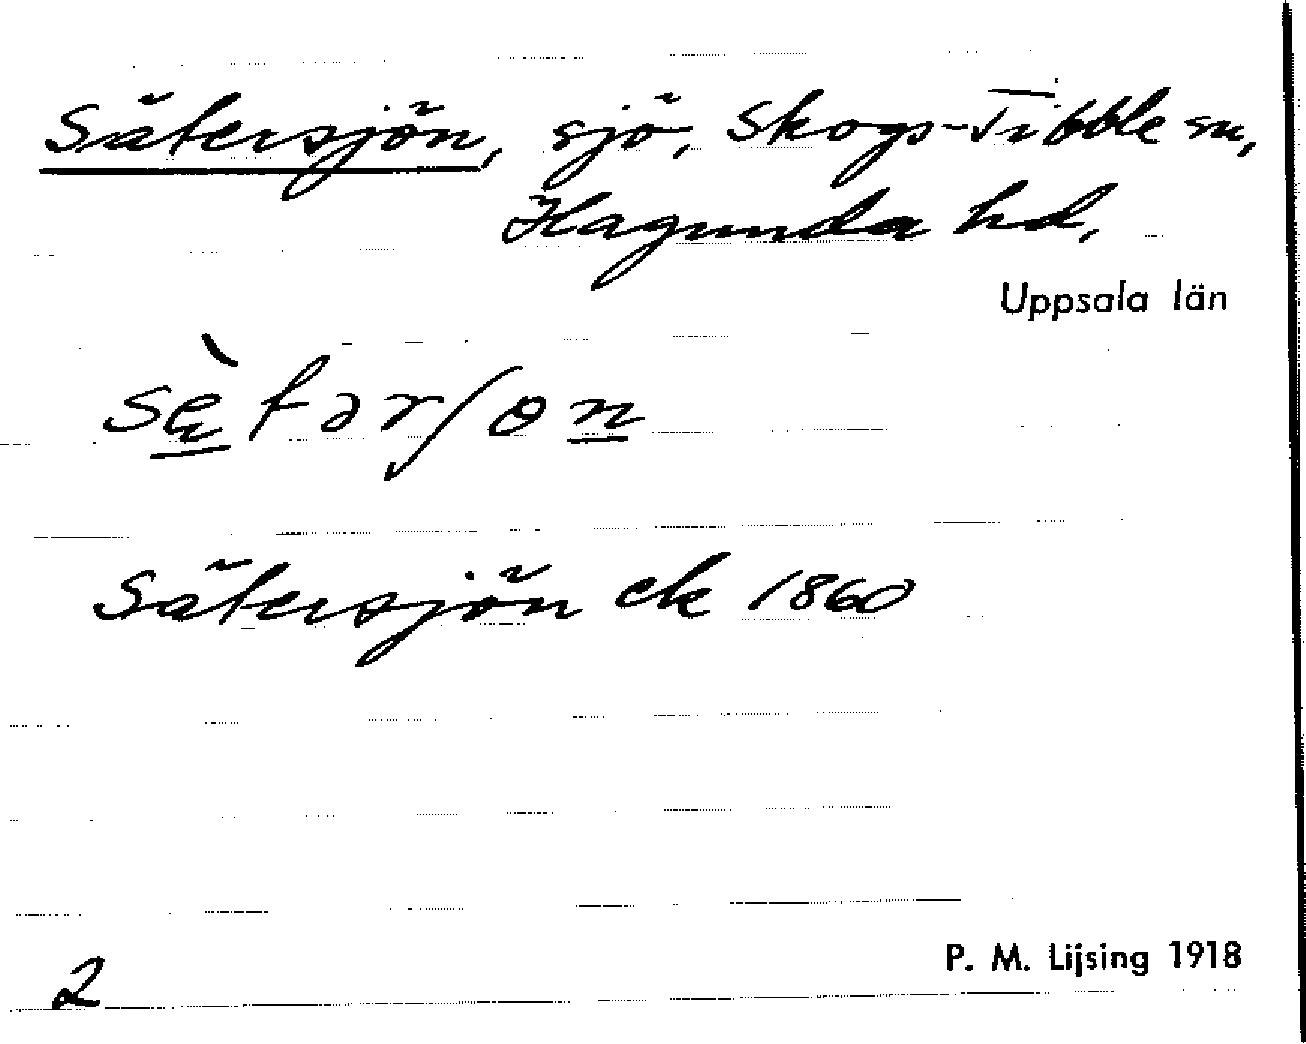 Sätersjön, sjö, Skogs-Tibble sn,
Hagunda hd,
Uppsala län
sę̀tərʃon
Sätersjön ek 1860
P. M. Lijsing 1918
2